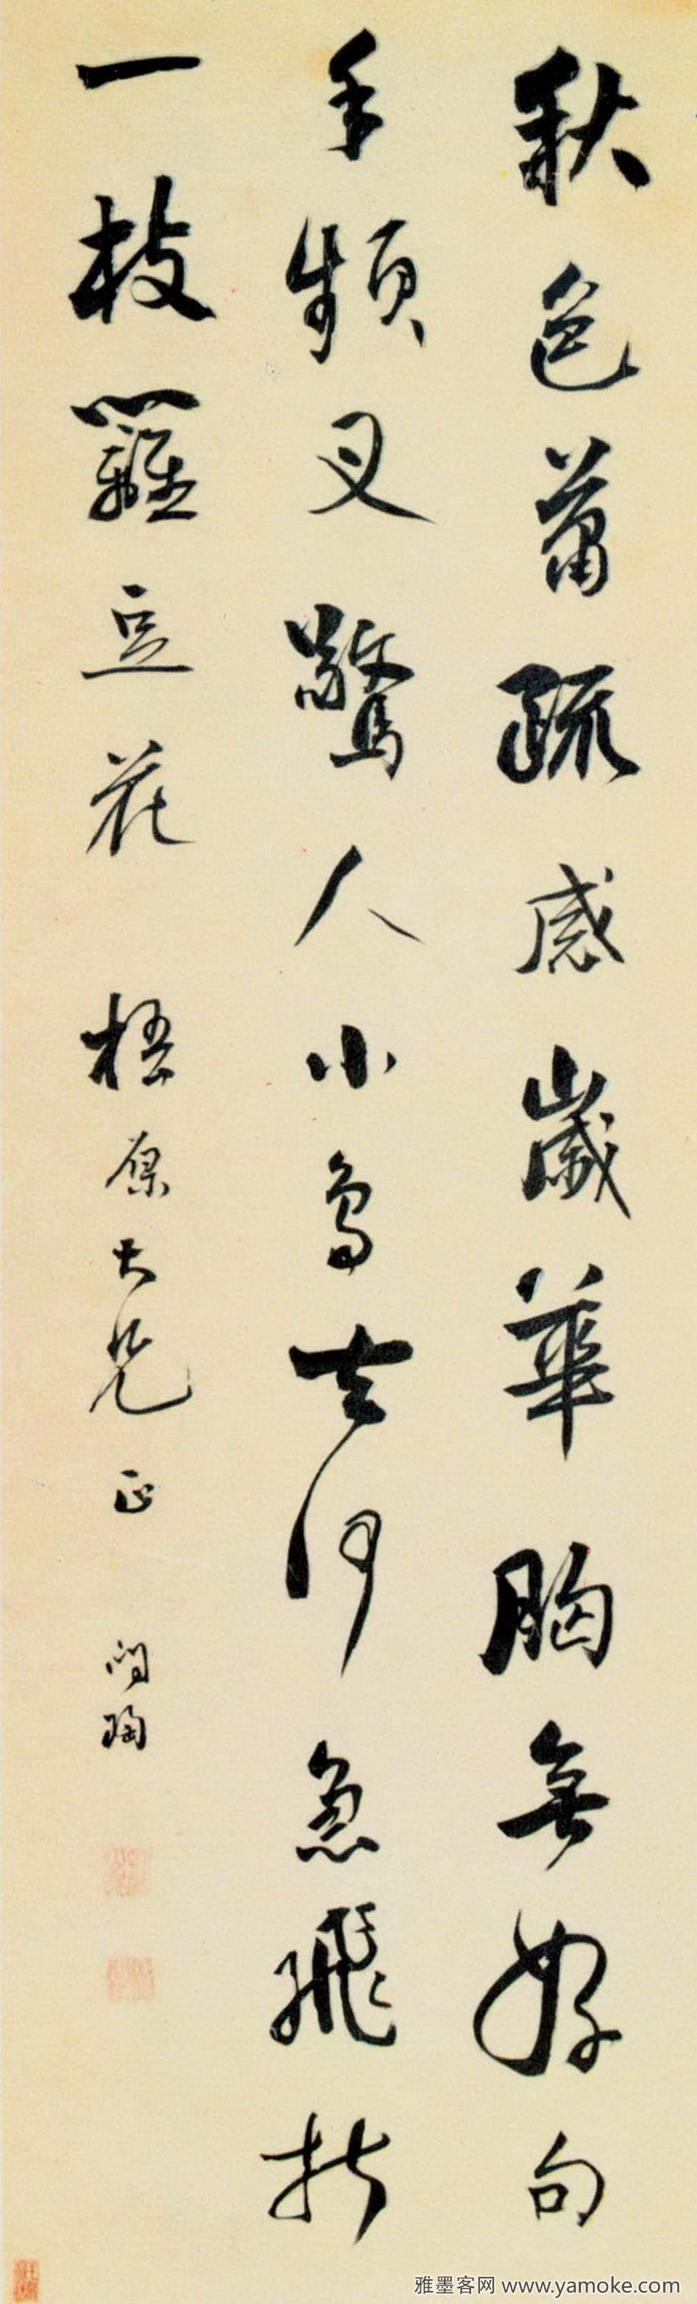 秋色蕭疏感歲華胸無好句
手頻叉驚人小鳥去何急飛折
一枝籬豆花 梧原大兄正
雅墨客网 www.yamoke.com